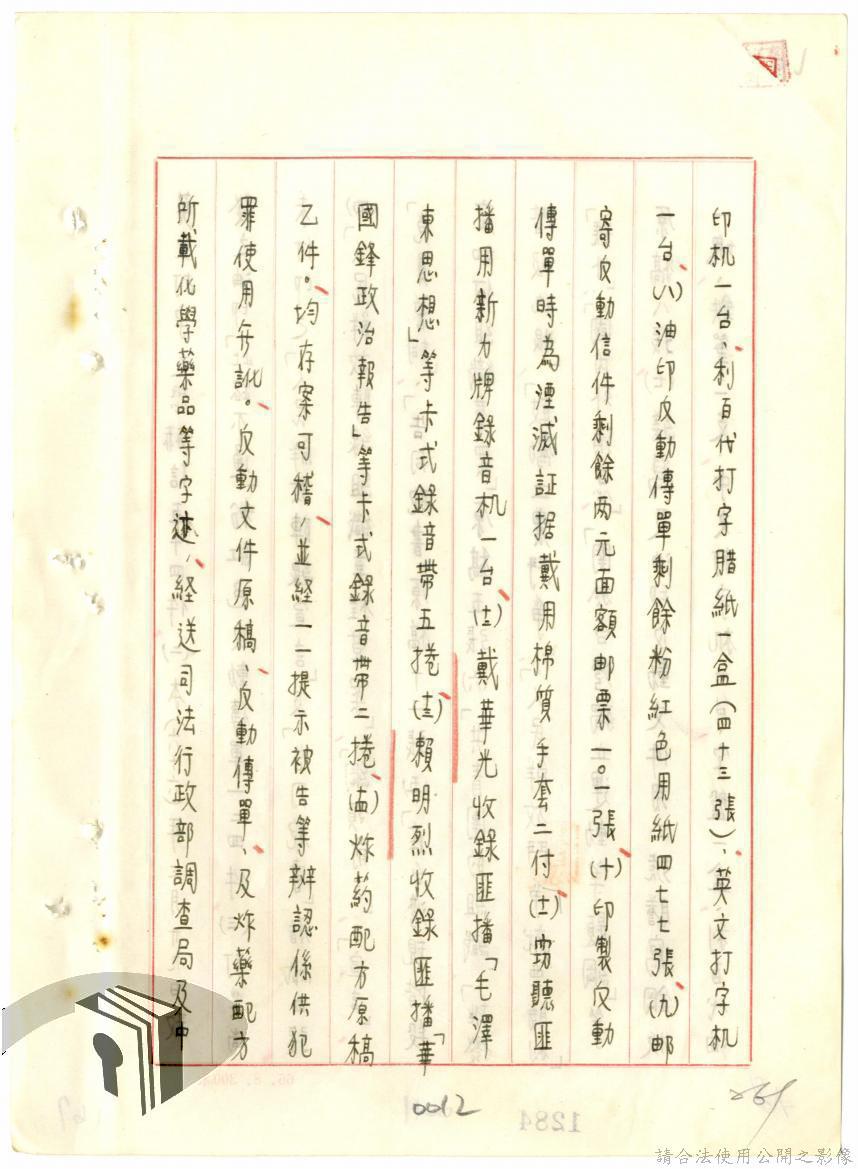 印机一台、利百代打字腊紙一盒(四十三張)、英文打字机
一台、(八)油印反動傳單剩餘粉紅色用紙四七七張、(九)郵
寄反動信件剩餘两元面額邮票一〇一張、(十)印製反動
傳單時為湮滅証据戴用棉質手套二付、(士)窃聽匪
播用新力牌錄音机一台、(士)戴華光收錄匪播「毛澤
東思想」等卡式錄音帶五捲、(圭)賴明烈收錄匪播「華
國鋒政治報告」等卡式錄音帶二捲、(圡)炸葯配方原稿
乙件。均存案可稽,並経一一提示被告等辨認係供犯
罪使用無訛。反動文件原稿、反動傳單、及炸藥配方
所載化學藥品等字迹,経送司法行政部調查局及中
0012
1284
請合法使用公開之影像